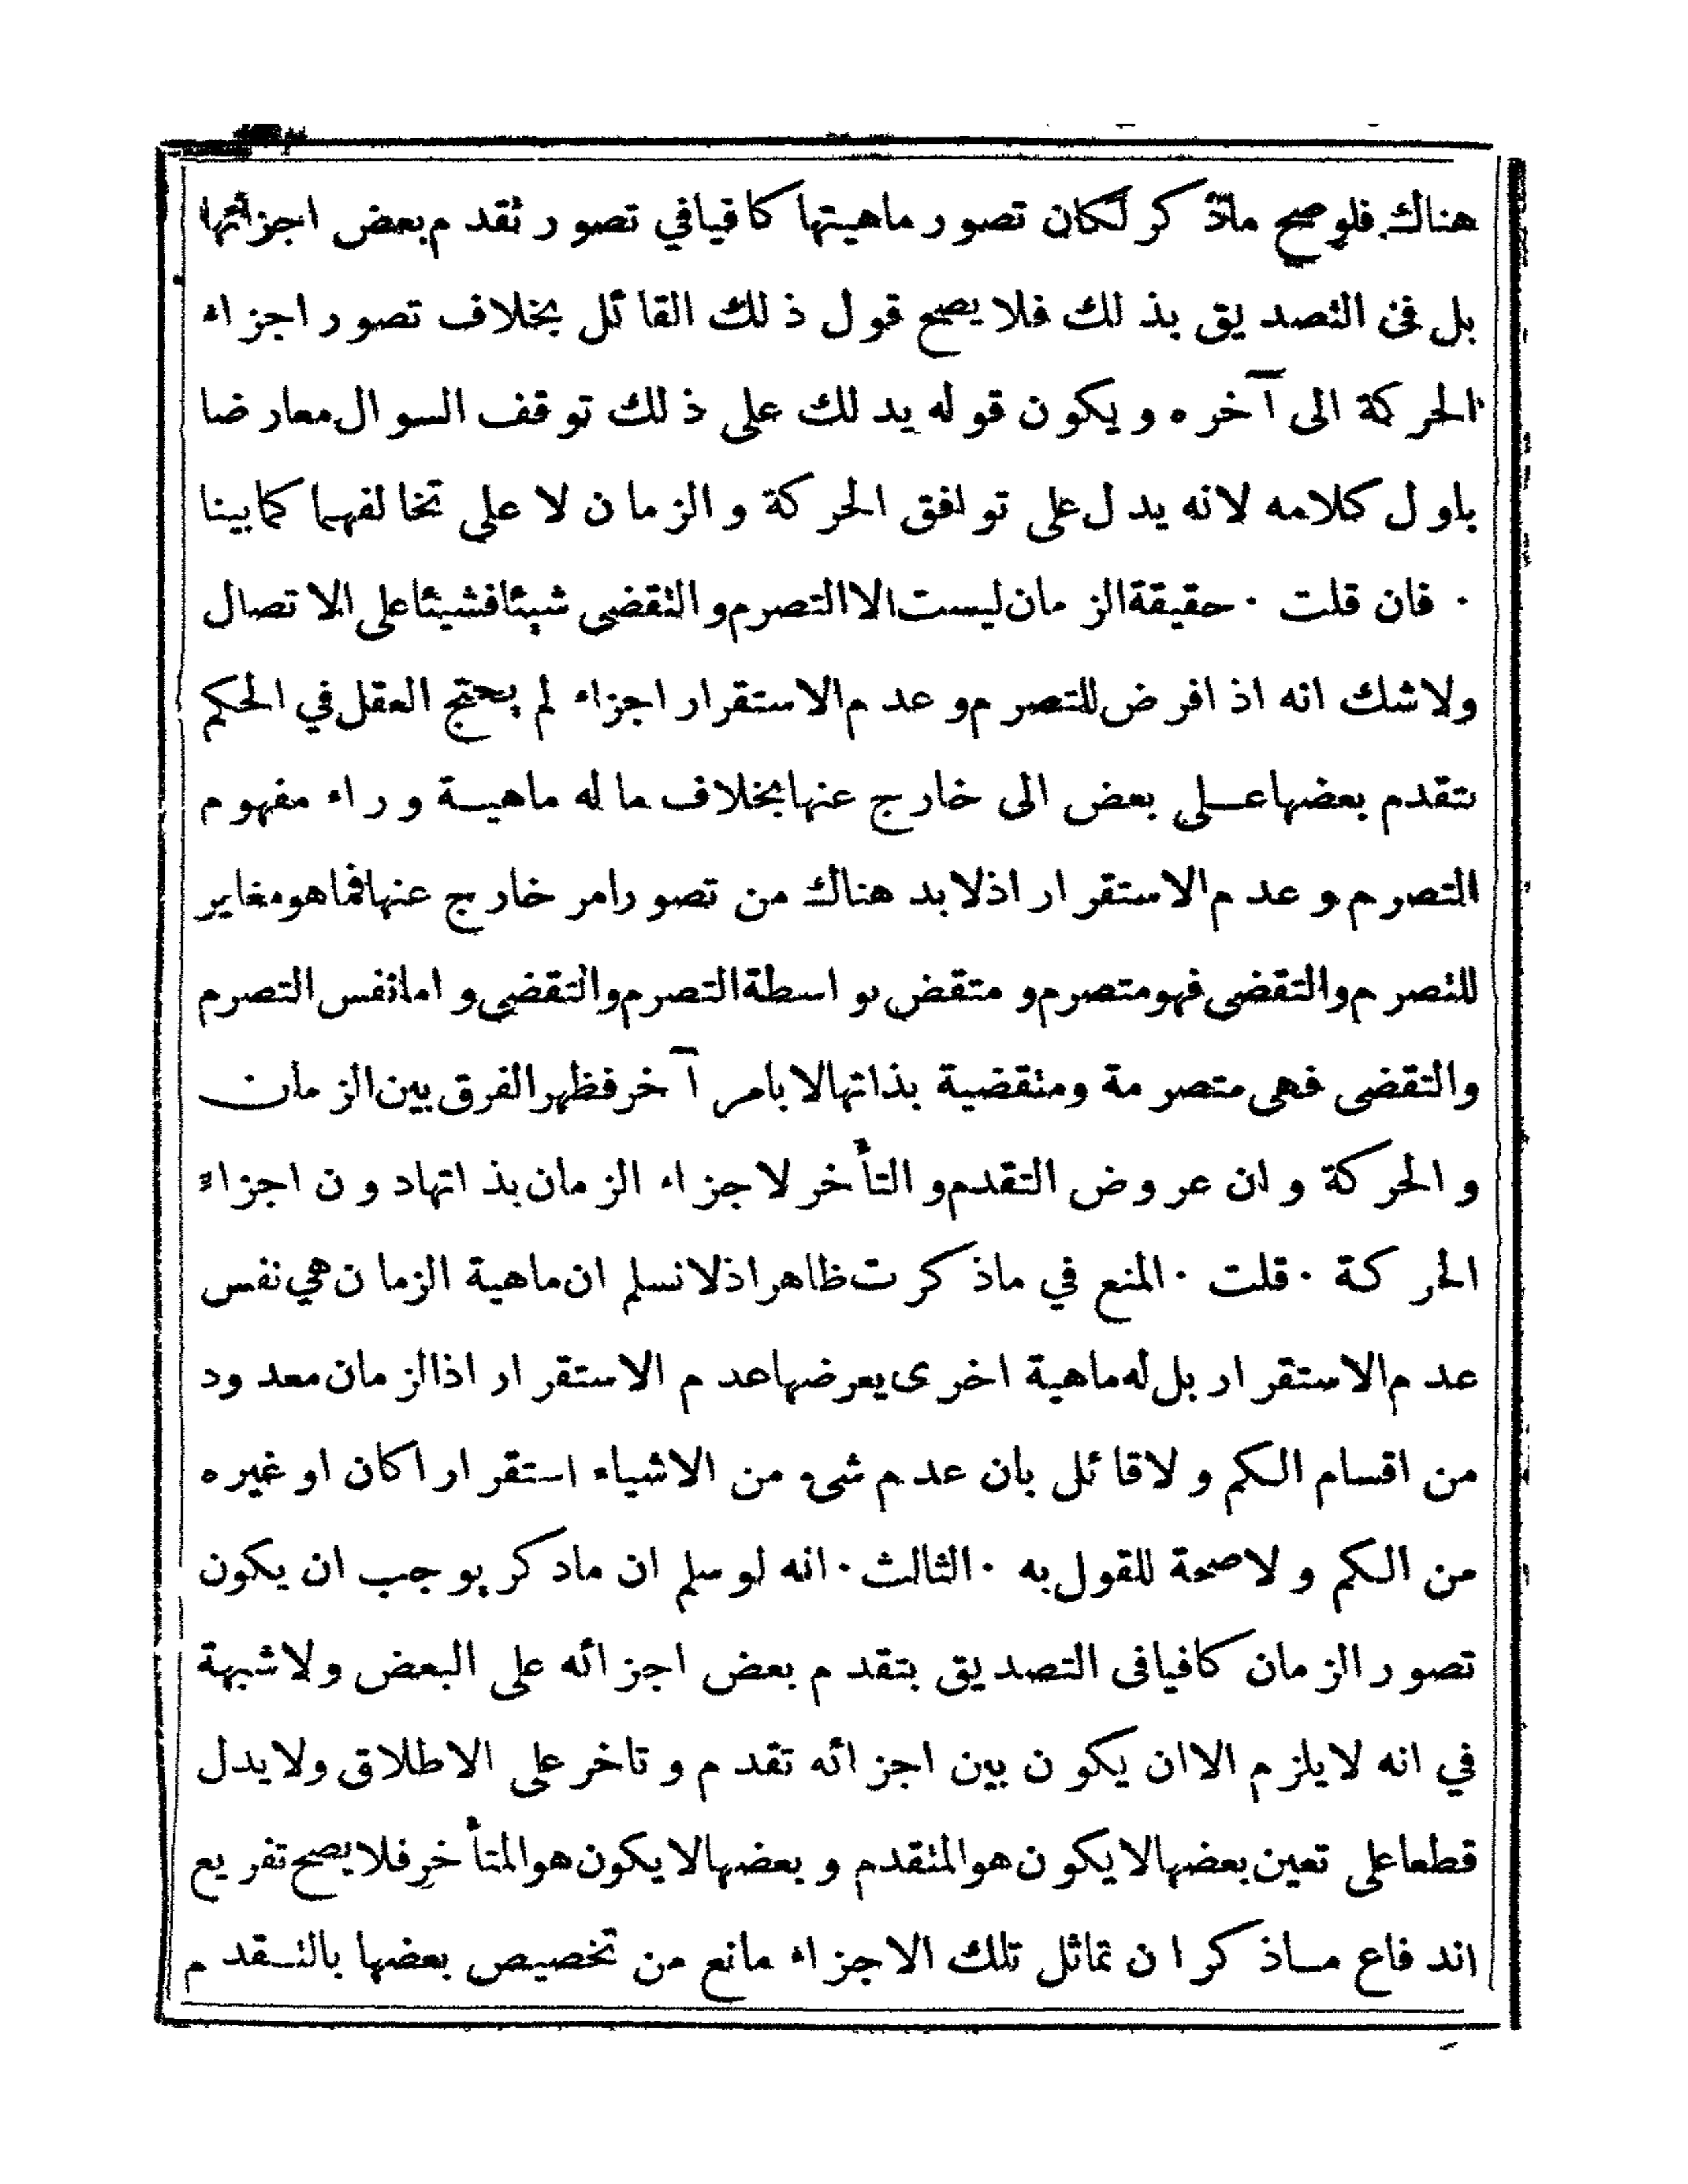 هناك فلوصح ماذكر لكان تصور ماهيتها كافيافي تصور تقدم بعض اجزائها
بل فى التصديق بذلك فلا يصح قول ذلك القائل بخلاف تصور اجزاء
الحركة الى آخره ويكون قوله يدلك على ذلك توقف السوال معارضا
باول كلامه لانه يدل على توافق الحركة والزمان لا على تخالفهما كما بينا
· فان قلت · حقيقة الزمان ليست الا التصرم والتقضى شيئا فشيئا على الاتصال
ولاشك انه اذا فرض للتصرم وعدم الاستقرار اجزاء لم يحتج العقل في الحكم
بتقدم بعضها على بعض الى خارج عنها بخلاف ما له ماهية وراء مفهوم
التصرم وعدم الاستقرار اذلابد هناك من تصور امر خارج عنها فما هو مغاير
للتصرم والتقضى فهو متصرم ومتقض بواسطة التصرم والتقضى واما نفس التصرم
والتقضى فهى متصرمة ومنقضية بذاتها لا بامر آخر فظهر الفرق بين الزمان
والحركة وان عروض التقدم والتأخر لاجزاء الزمان بذاتها دون اجزاء
الحركة · قلت · المنع في ماذكرت ظاهر اذلا نسلم ان ماهية الزمان هي نفس
عدم الاستقرار بل له ماهية اخرى يعرضها عدم الاستقرار اذا الزمان معدود
من اقسام الكم ولا قائل بان عدم شىء من الاشياء استقرارا كان او غيره
من الكم ولا صحة للقول به · الثالث · انه لو سلم ان مادكر يوجب ان يكون
تصور الزمان كافيا فى التصديق بتقدم بعض اجزائه على البعض ولاشبهة
في انه لا يلزم الا ان يكون بين اجزائه تقدم وتاخر على الاطلاق ولا يدل
قطعا على تعين بعضها لا يكون هو المتقدم وبعضها لا يكون هو المتأخر فلا يصح تفريع
اندفاع ماذكر ان تماثل تلك الاجزاء مانع من تخصيص بعضها بالتقدم